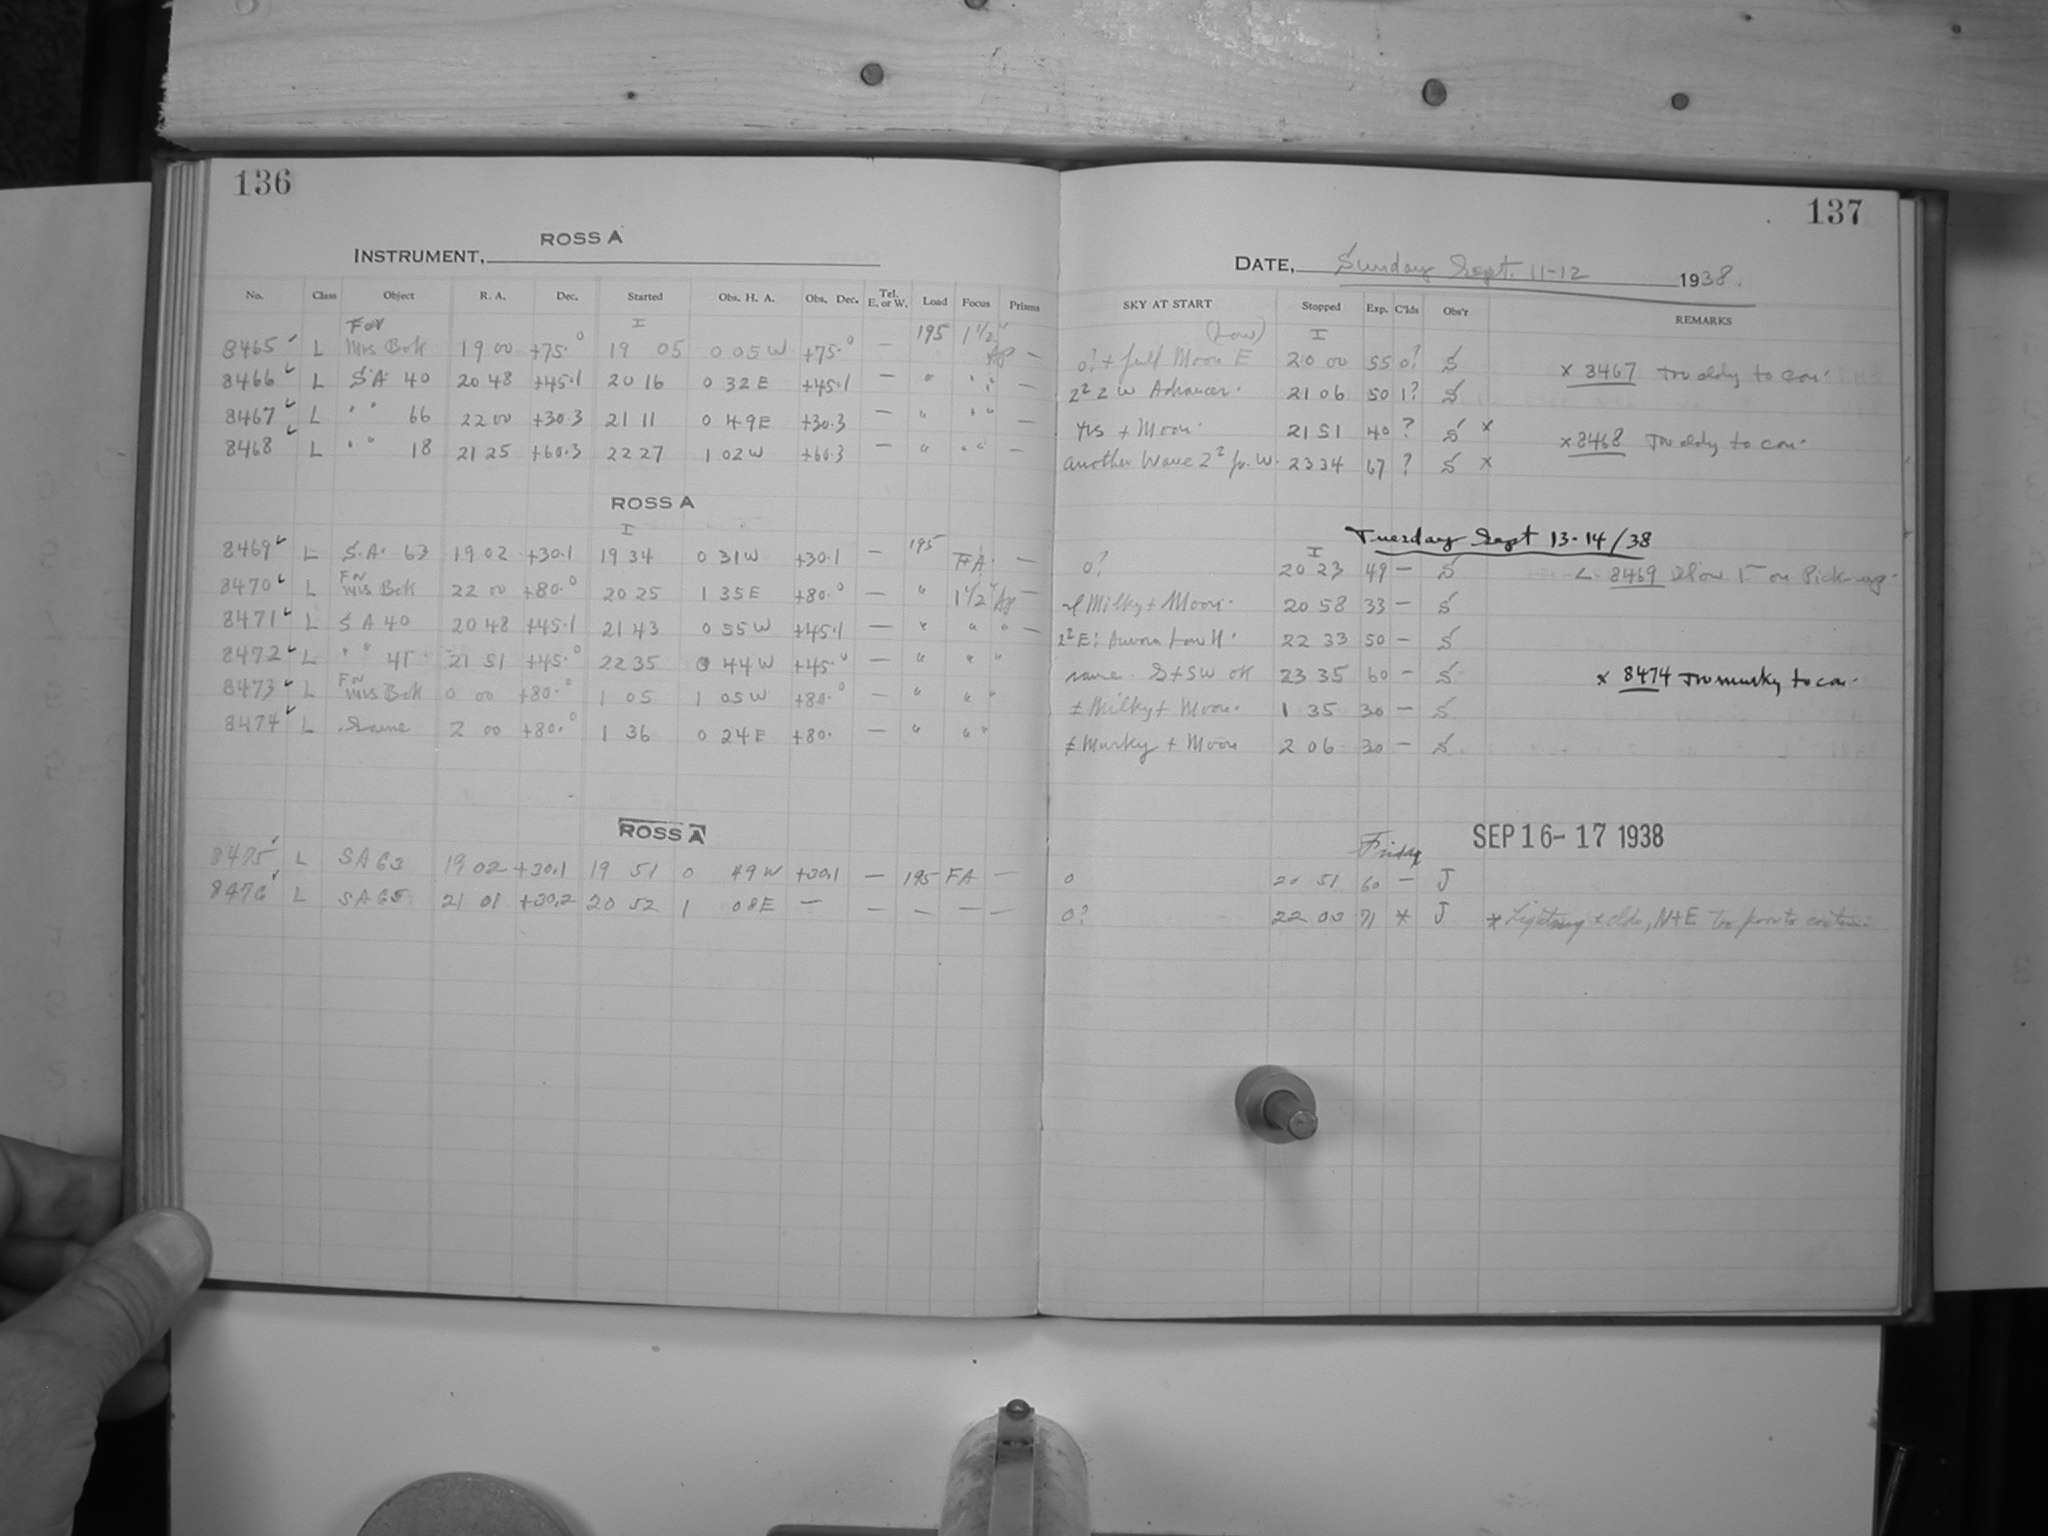 136
ROSS A
INSTRUMENT,
No. Class Object R. A. Dec. Started Obs. H. A. Obs. Dec. Tel. E. or W. Load Focus Prisms
8465 L For Mrs Bok 19 00 +75.0 I 19 05 0 05 W +75.0 — 195 1 1/2" Ap —
8466 L S.A. 40 20 48 +45.1 20 16 0 32 E +45.1 — " " " —
8467 L " " 66 22 00 +30.3 21 11 0 49 E +30.3 — " " " —
8468 L " " 18 21 25 +60.3 22 27 1 02 W +60.3 — " " " —
ROSS A
8469 L S.A. 63 19 02 +30.1 I 19 34 0 31 W +30.1 — 195 FA. —
8470 L For Mrs Bok 22 00 +80.0 20 25 1 35 E +80.0 — " 1 1/2" Ap —
8471 L S A 40 20 48 +45.1 21 43 0 55 W +45.1 — " " " —
8472 L " " 41 21 51 +45.0 22 35 0 44 W +45.0 — " " "
8473 L For Mrs Bok 0 00 +80.0 1 05 1 05 W +80.0 — " " "
8474 L Same 2 00 +80.0 1 36 0 24 E +80. — " " "
ROSS A
8475 L SA 63 19 02 +30.1 19 51 0 49 W +30.1 — 195 FA —
8476 L SA 65 21 01 +30.2 20 52 1 08 E — — — — —
137
DATE, Sunday Sept. 11-12 1938.
SKY AT START Stopped Exp. C'lds Obs'r REMARKS
0? + full Moon E (Low) I 20 00 55 0? S
x 8467 Too cldy to con.
2² 2 W Advancer. 21 06 50 1? S
Yes + Moon. 21 51 40 ? S x
x 8468 Too cldy to con.
Another Wave 2² fr. W. 23 34 67 ? S x
Tuesday Sept 13-14/38
0? I 20 23 49 — S
8469 Slow on Pick-up.
Milky + Moon. 20 58 33 — S
2² E; Aurora Low N. 22 33 50 — S
same. S + SW ok 23 35 60 — S
x 8474 Too murky to con.
± Milky + Moon. 1 35 30 — S
± Murky + Moon 2 06 30 — S
Friday SEP 16-17 1938
0 20 51 60 — J
0? 22 03 71 * J * Lightning + clds, N+E Too poor to continue.